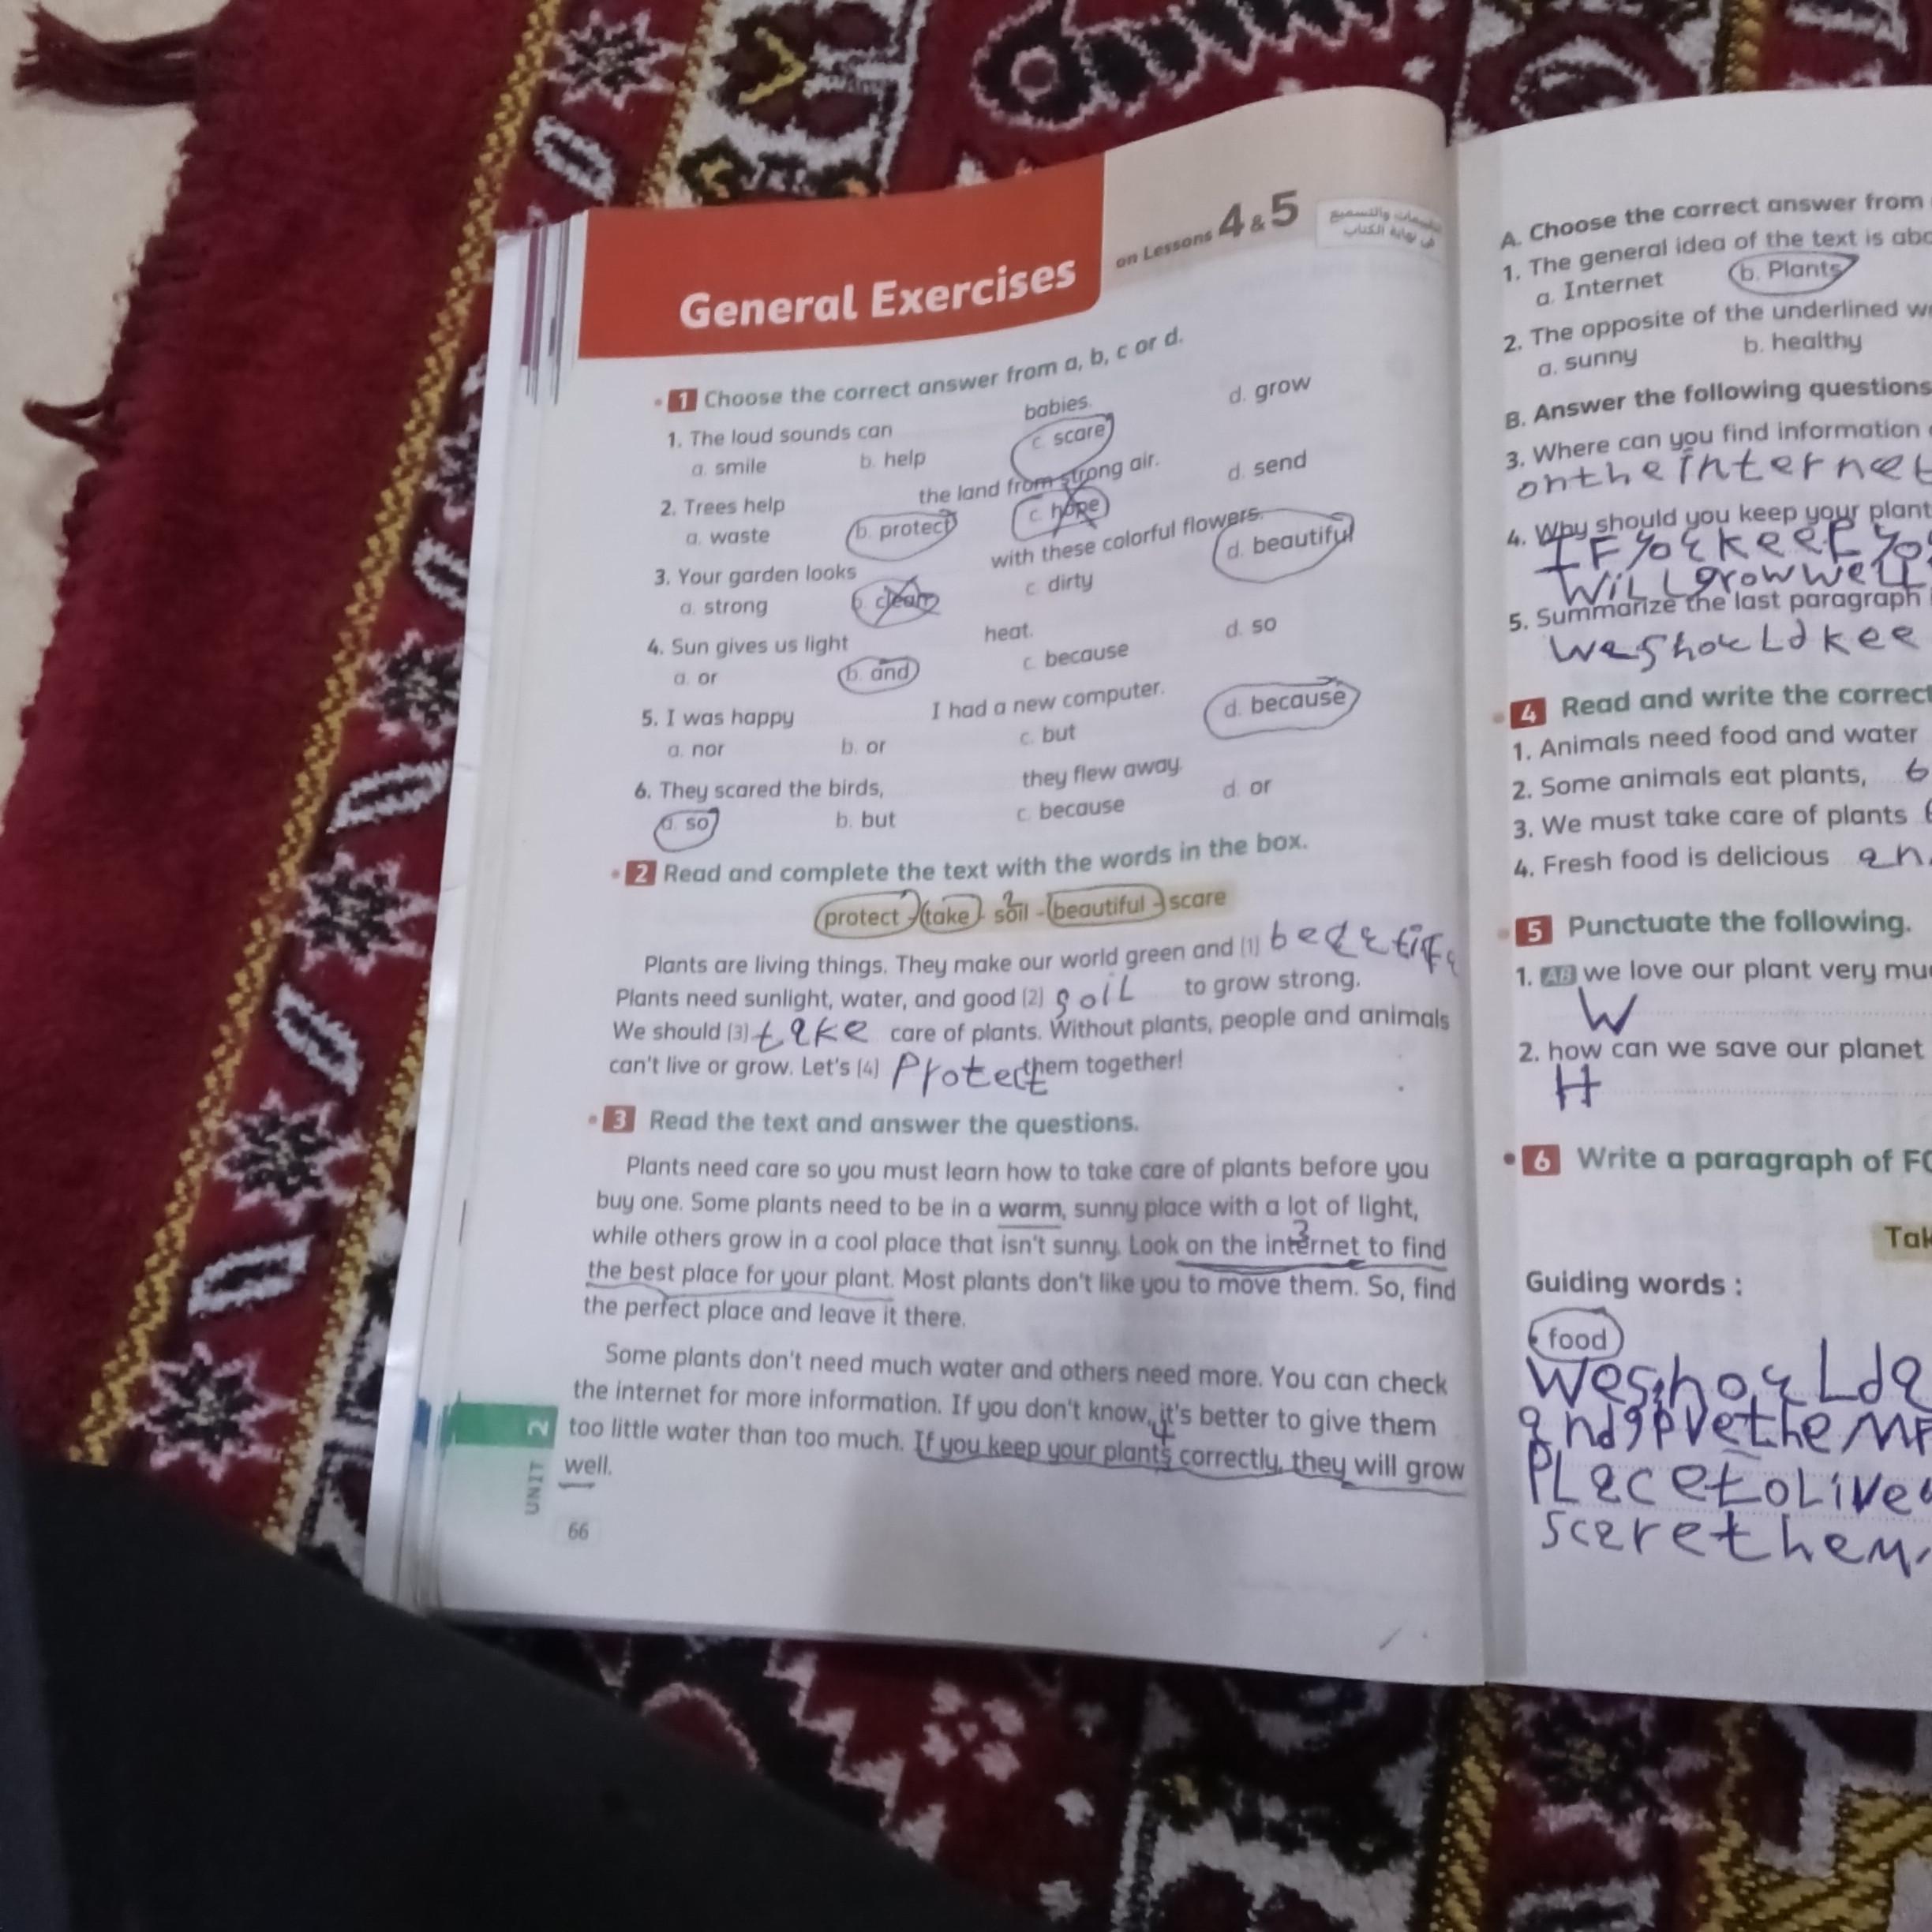 General Exercises
on Lessons 4 & 5
1 Choose the correct answer from a, b, c or d.
1. The loud sounds can babies.
a. smile b. help c. scare d. grow
2. Trees help the land from strong air.
a. waste b. protect c. hope d. send
3. Your garden looks with these colorful flowers.
a. strong b. clean c. dirty d. beautiful
4. Sun gives us light heat.
a. or b. and c. because d. so
5. I was happy I had a new computer.
a. nor b. or c. but d. because
6. They scared the birds, they flew away.
a. so b. but c. because d. or
2 Read and complete the text with the words in the box.
protect - take - soil - beautiful - scare
2
Plants are living things. They make our world green and (1)
Plants need sunlight, water, and good (2) soil to grow strong.
We should (3) take care of plants. Without plants, people and animals
can't live or grow. Let's (4) Protect them together!
3 Read the text and answer the questions.
Plants need care so you must learn how to take care of plants before you
buy one. Some plants need to be in a warm, sunny place with a lot of light,
3
while others grow in a cool place that isn't sunny. Look on the internet to find
the best place for your plant. Most plants don't like you to move them. So, find
the perfect place and leave it there.
Some plants don't need much water and others need more. You can check
the internet for more information. If you don't know, it's better to give them
4
too little water than too much. If you keep your plants correctly, they will grow
well.
UNIT 2
66
A. Choose the correct answer from
1. The general idea of the text is abo
a. Internet b. Plants
2. The opposite of the underlined w
a. sunny b. healthy
B. Answer the following questions
3. Where can you find information
on the internet
4. Why should you keep your plant
IF you keep yo
will grow well
5. Summarize the last paragraph
we should kee
4 Read and write the correct
1. Animals need food and water
2. Some animals eat plants, b
3. We must take care of plants
4. Fresh food is delicious an
5 Punctuate the following.
1. AB we love our plant very mu
W
2. how can we save our planet
H
6 Write a paragraph of FO
Tak
Guiding words :
food
We should
and give them
Place to live
scare them